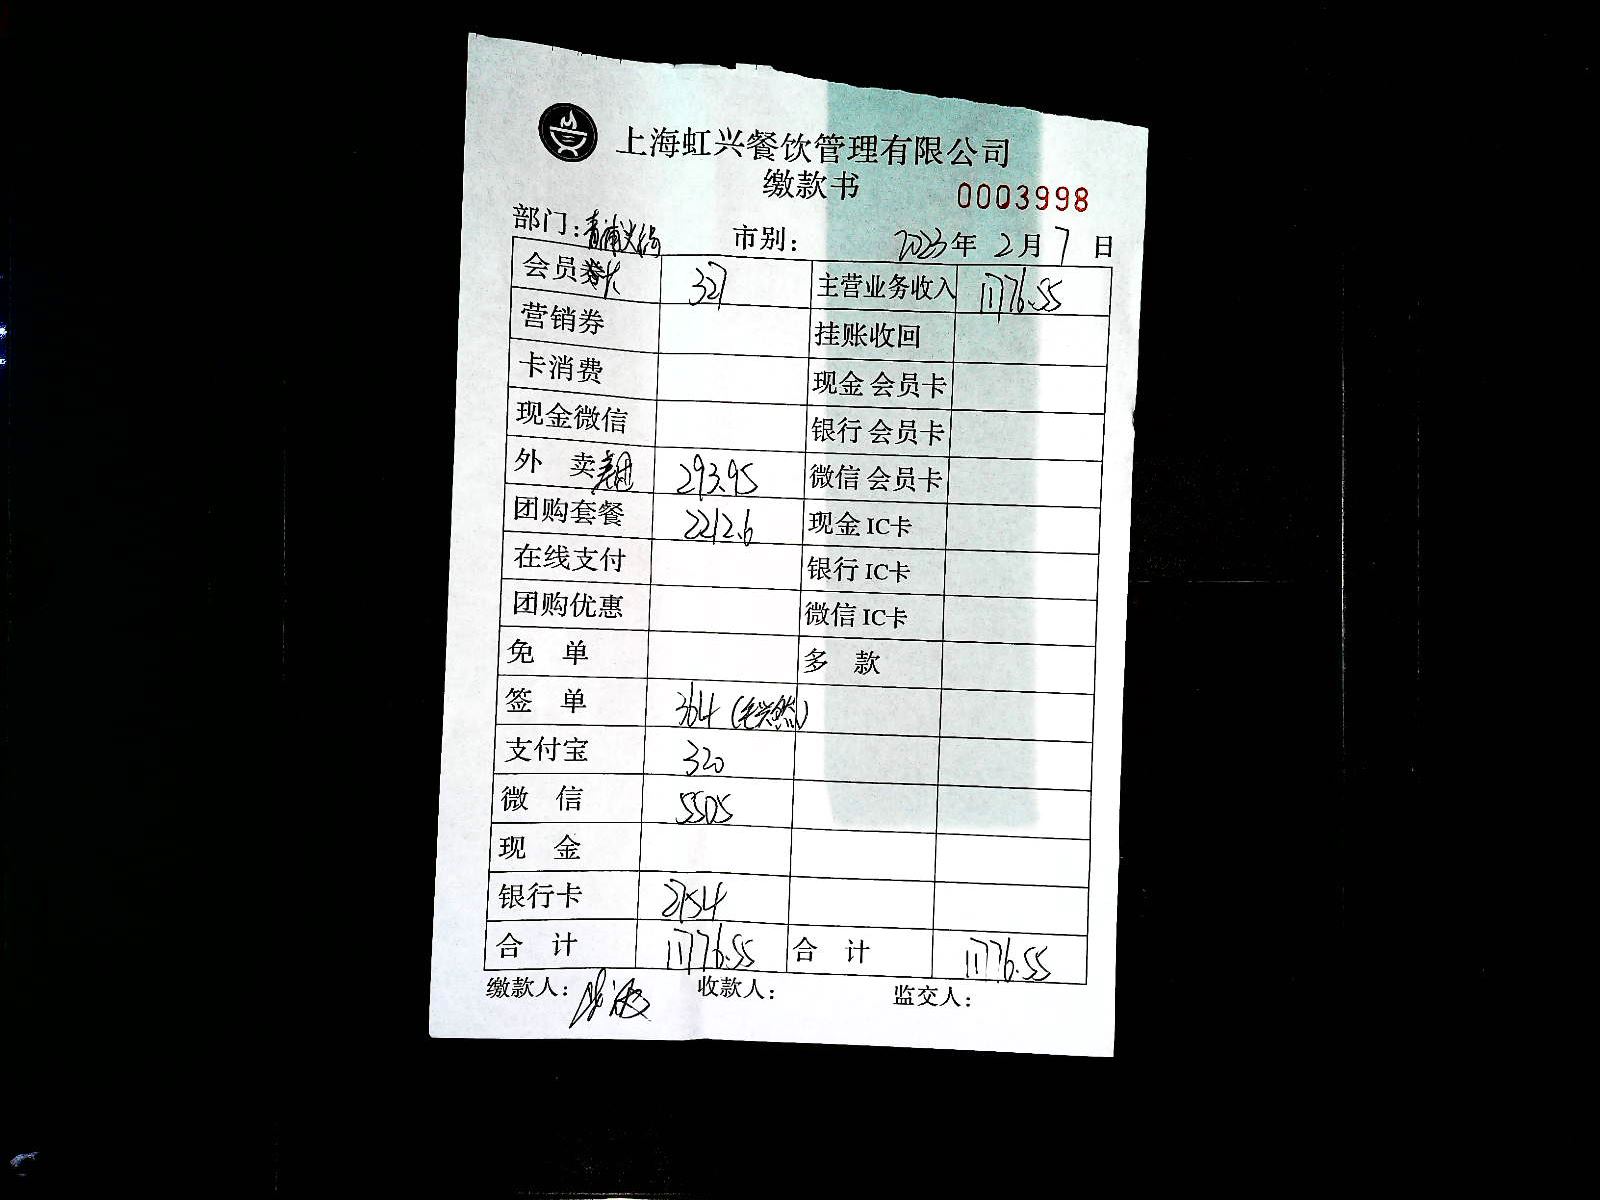 上海虹兴餐饮管理有限公司
缴款书 0003998
部门: 青浦 市别: 2023年 2月 7日
会员卡 327 主营业务收入 11776.55
营销券 挂账收回
卡消费 现金 会员卡
现金微信 银行 会员卡
外 卖 美团 293.95 微信 会员卡
团购套餐 2212.6 现金 IC卡
在线支付 银行 IC卡
团购优惠 微信 IC卡
免 单 多 款
签 单 364
支付宝 320
微 信 5505
现 金
银行卡 2754
合 计 11776.55 合 计 11776.55
缴款人: 收款人: 监交人: